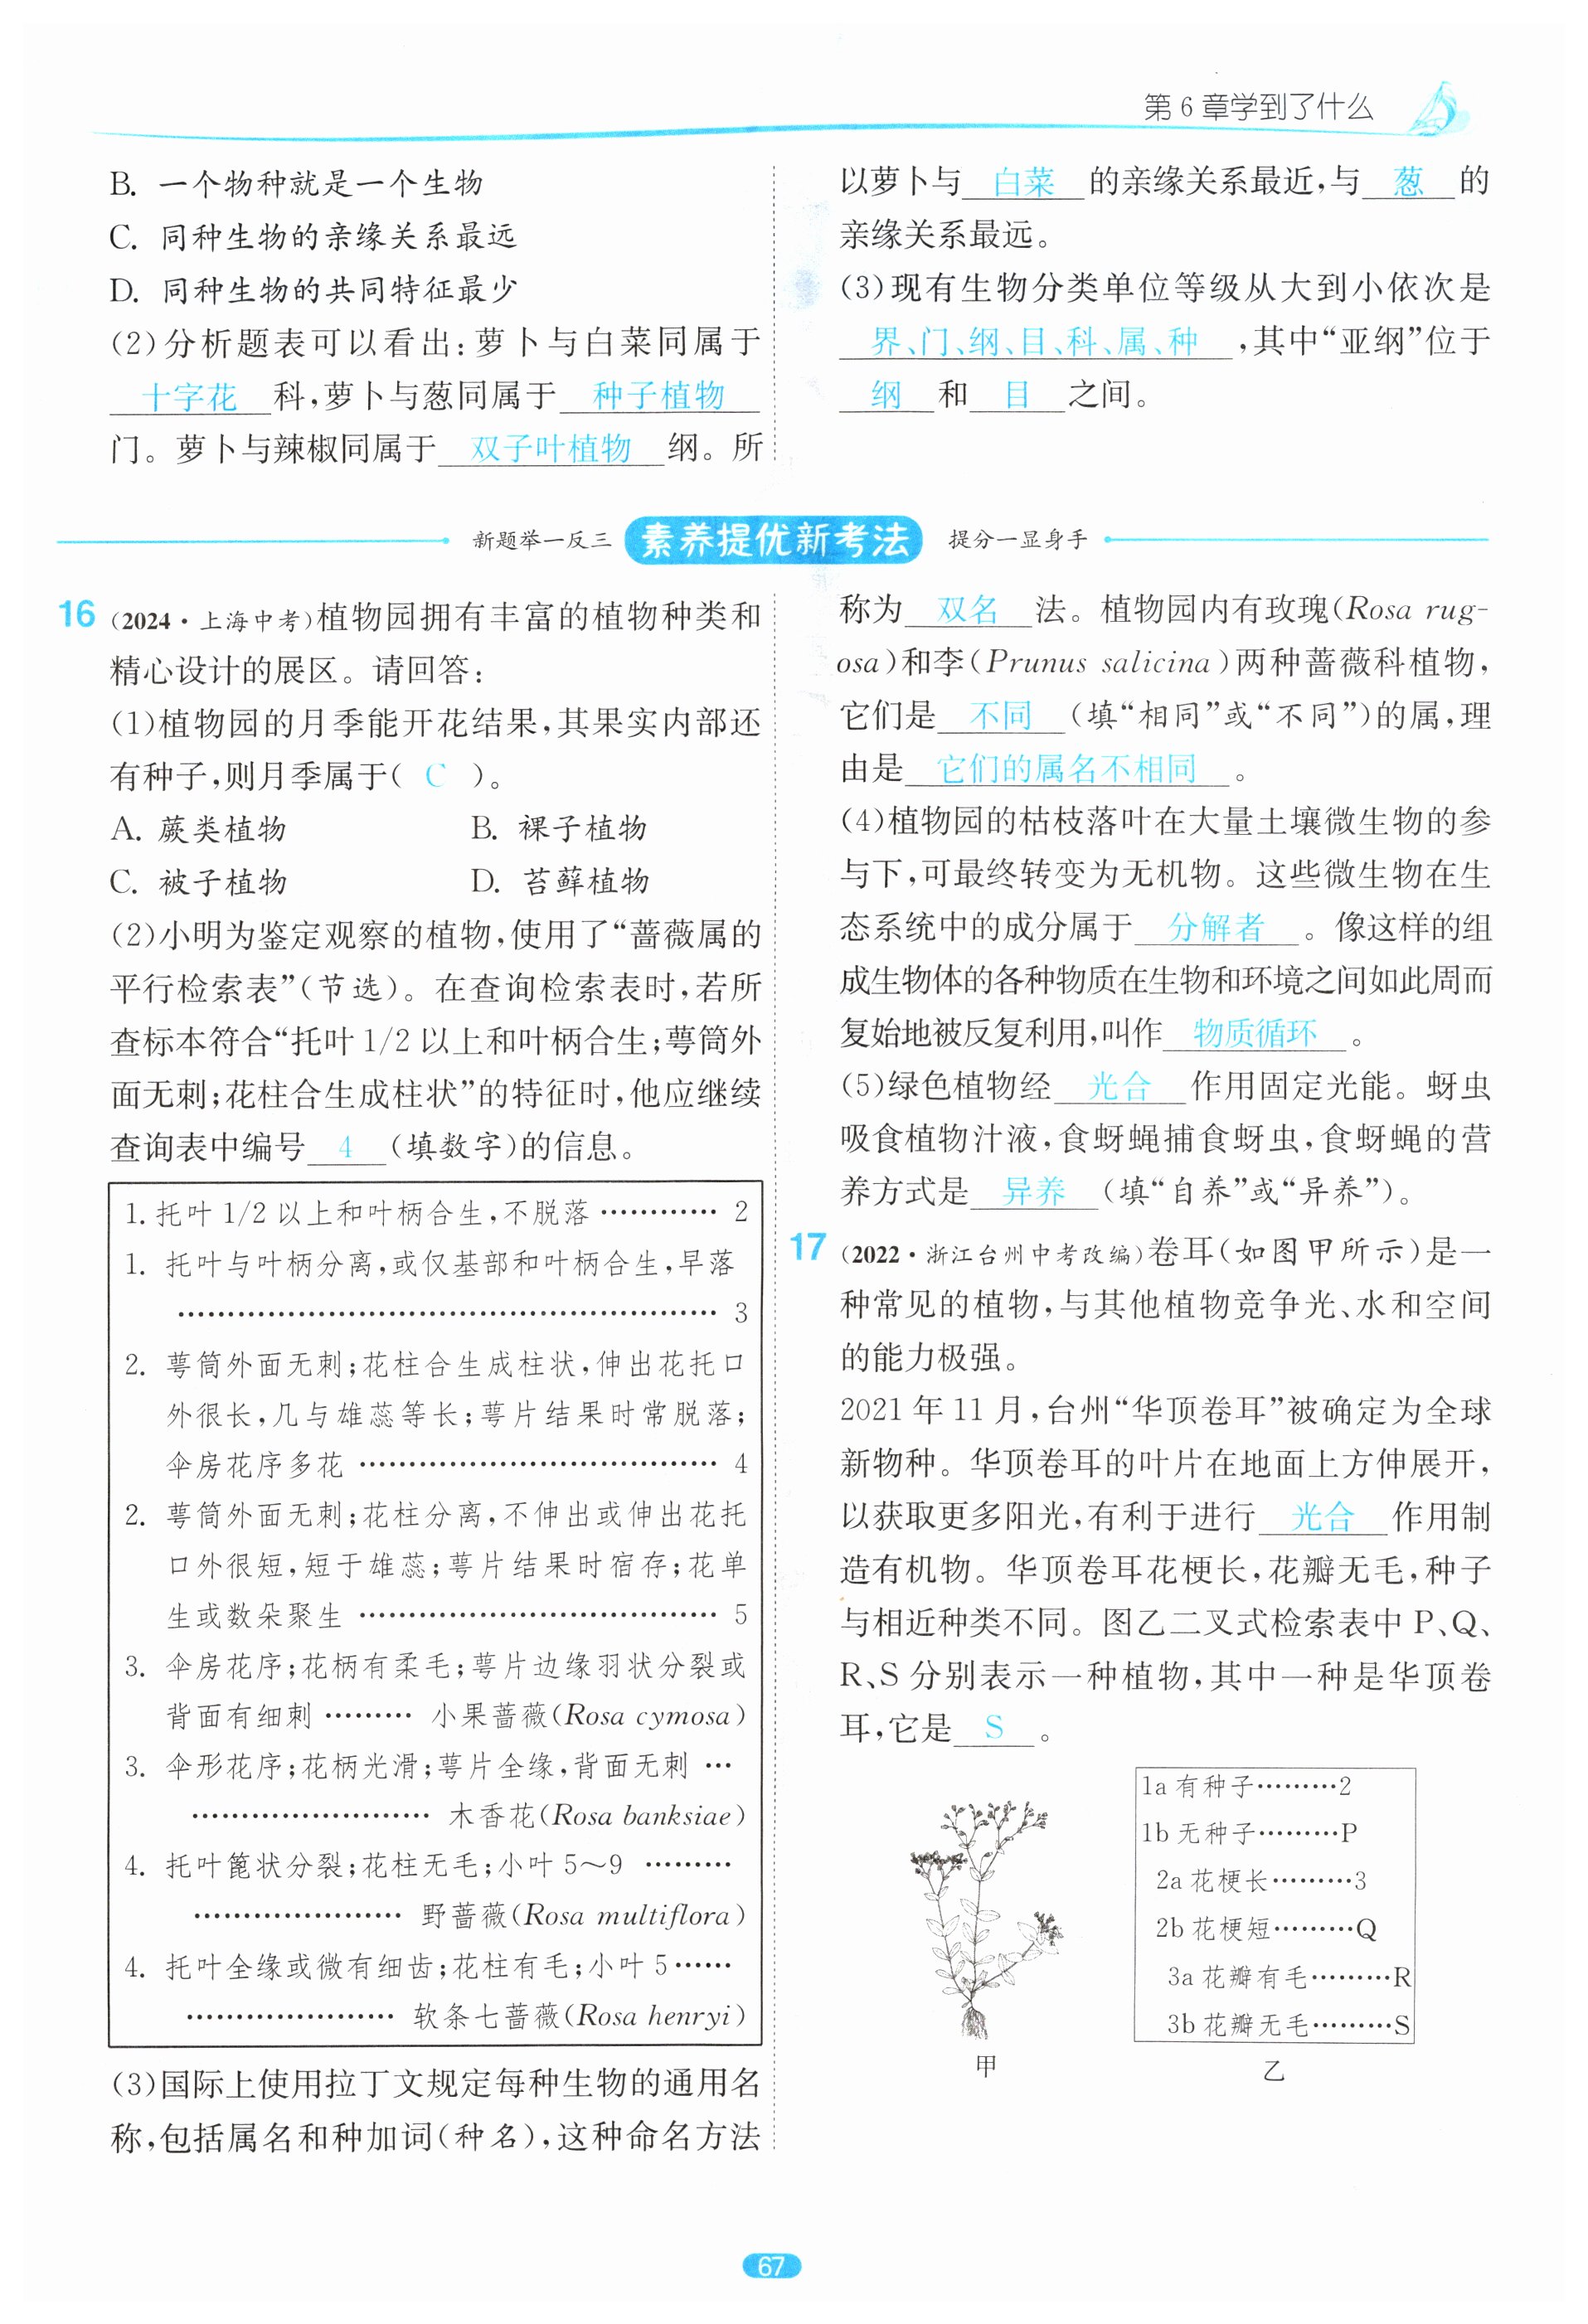 第6章学到了什么
B. 一个物种就是一个生物
C. 同种生物的亲缘关系最远
D. 同种生物的共同特征最少
(2)分析题表可以看出:萝卜与白菜同属于
十字花 科,萝卜与葱同属于 种子植物
门。萝卜与辣椒同属于 双子叶植物 纲。所
以萝卜与 白菜 的亲缘关系最近,与 葱 的
亲缘关系最远。
(3)现有生物分类单位等级从大到小依次是
界、门、纲、目、科、属、种 ,其中“亚纲”位于
纲 和 目 之间。
新题举一反三 素养提优新考法 提分一显身手
16 (2024·上海中考)植物园拥有丰富的植物种类和
精心设计的展区。请回答:
(1)植物园的月季能开花结果,其果实内部还
有种子,则月季属于( C )。
A. 蕨类植物 B. 裸子植物
C. 被子植物 D. 苔藓植物
(2)小明为鉴定观察的植物,使用了“蔷薇属的
平行检索表”(节选)。在查询检索表时,若所
查标本符合“托叶1/2以上和叶柄合生;萼筒外
面无刺;花柱合生成柱状”的特征时,他应继续
查询表中编号 4 (填数字)的信息。
1. 托叶1/2以上和叶柄合生,不脱落 ………… 2
1. 托叶与叶柄分离,或仅基部和叶柄合生,早落
………………………………………………… 3
2. 萼筒外面无刺;花柱合生成柱状,伸出花托口
外很长,几与雄蕊等长;萼片结果时常脱落;
伞房花序多花 ………………………………… 4
2. 萼筒外面无刺;花柱分离,不伸出或伸出花托
口外很短,短于雄蕊;萼片结果时宿存;花单
生或数朵聚生 ………………………………… 5
3. 伞房花序;花柄有柔毛;萼片边缘羽状分裂或
背面有细刺 ……… 小果蔷薇(Rosa cymosa)
3. 伞形花序;花柄光滑;萼片全缘,背面无刺 …
…………………… 木香花(Rosa banksiae)
4. 托叶篦状分裂;花柱无毛;小叶5~9 ………
………………… 野蔷薇(Rosa multiflora)
4. 托叶全缘或微有细齿;花柱有毛;小叶5……
………………… 软条七蔷薇(Rosa henryi)
(3)国际上使用拉丁文规定每种生物的通用名
称,包括属名和种加词(种名),这种命名方法
称为 双名 法。植物园内有玫瑰(Rosa rug-
osa)和李(Prunus salicina)两种蔷薇科植物,
它们是 不同 (填“相同”或“不同”)的属,理
由是 它们的属名不相同 。
(4)植物园的枯枝落叶在大量土壤微生物的参
与下,可最终转变为无机物。这些微生物在生
态系统中的成分属于 分解者 。像这样的组
成生物体的各种物质在生物和环境之间如此周而
复始地被反复利用,叫作 物质循环 。
(5)绿色植物经 光合 作用固定光能。蚜虫
吸食植物汁液,食蚜蝇捕食蚜虫,食蚜蝇的营
养方式是 异养 (填“自养”或“异养”)。
17 (2022·浙江台州中考改编)卷耳(如图甲所示)是一
种常见的植物,与其他植物竞争光、水和空间
的能力极强。
2021年11月,台州“华顶卷耳”被确定为全球
新物种。华顶卷耳的叶片在地面上方伸展开,
以获取更多阳光,有利于进行 光合 作用制
造有机物。华顶卷耳花梗长,花瓣无毛,种子
与相近种类不同。图乙二叉式检索表中P、Q、
R、S分别表示一种植物,其中一种是华顶卷
耳,它是 S 。
1a 有种子………2
1b 无种子………P
2a 花梗长………3
2b 花梗短………Q
3a 花瓣有毛………R
3b 花瓣无毛………S
甲
乙
67